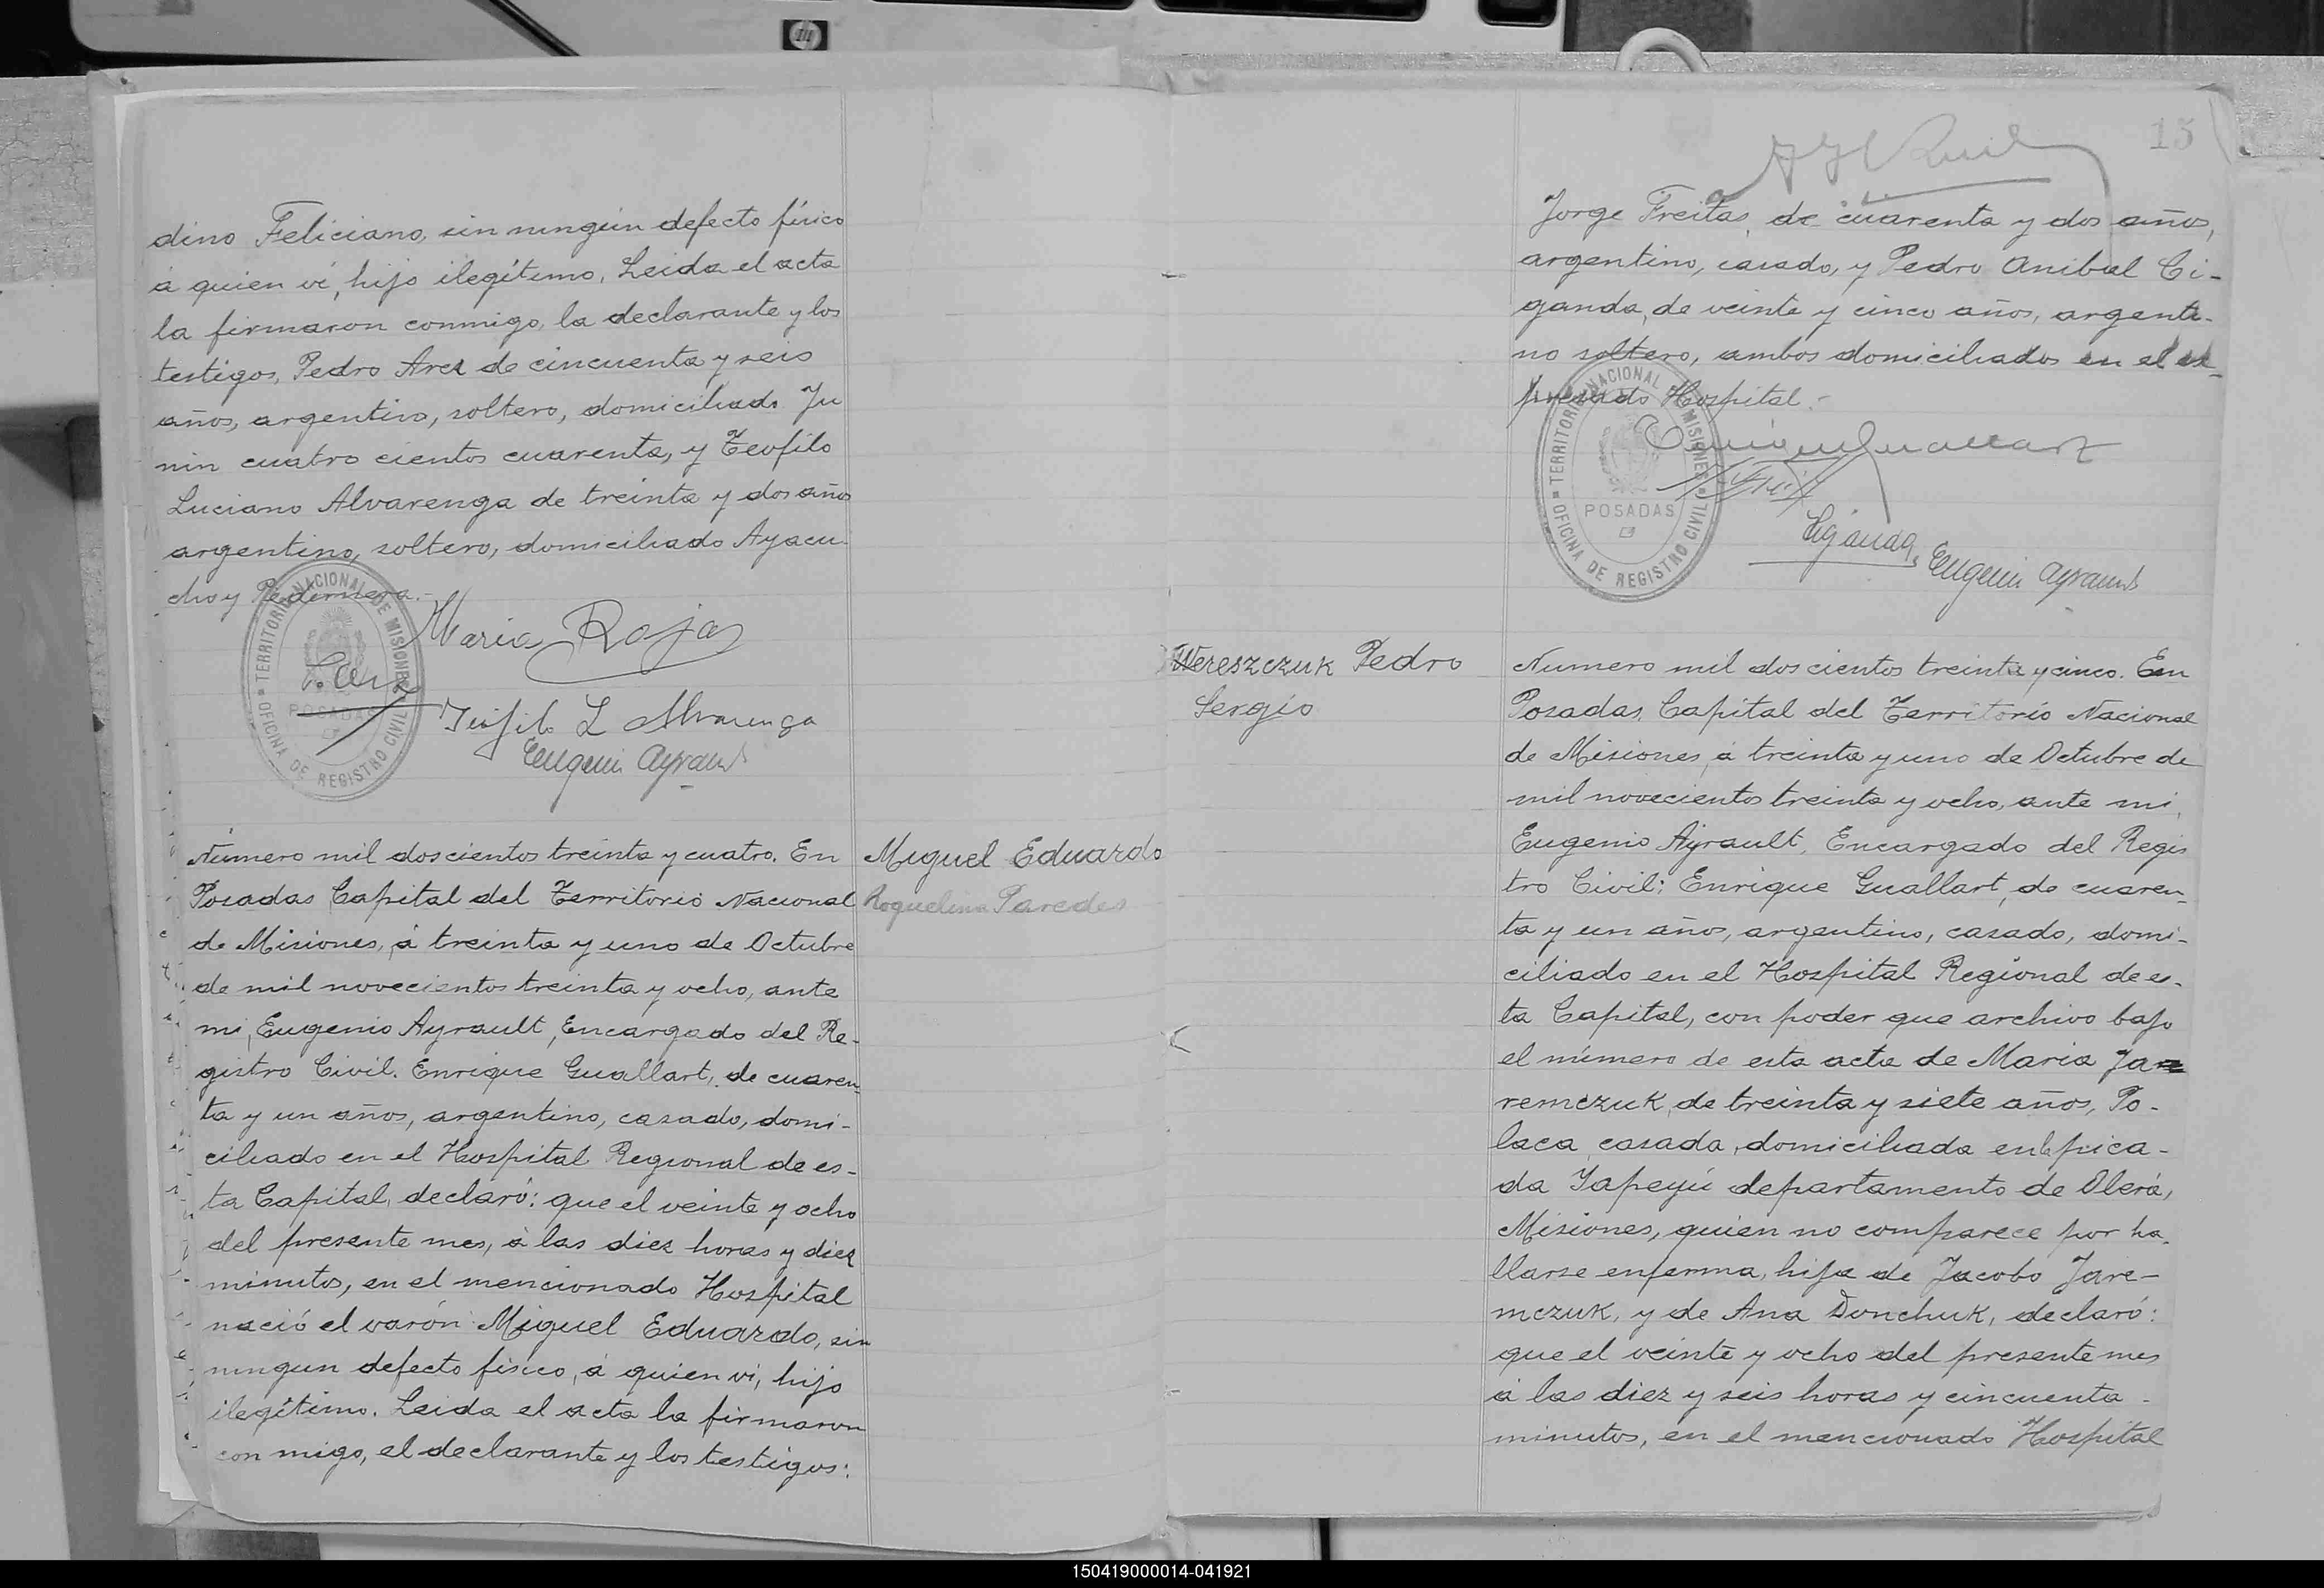 dino Feliciano, sin ningún defecto físico
á quien vi, hijo ilegítimo. Leida el acta
la firmaron conmigo, la declarante y los
testigos, Pedro Arez de cincuenta y seis
años, argentino, soltero, domiciliado Ju
nin cuatro cientos cuarenta, y Teofilo
Luciano Alvarenga de treinta y dos años
argentino, soltero, domiciliado Ayacu-
cho y Pedernera.-
Maria Roja
Teofilo L Alvarenga
Eugenio Ayrault
TERRITORIO NACIONAL DE MISIONES
POSADAS
OFICINA DE REGISTRO CIVIL
Número mil doscientos treinta y cuatro. En
Posadas Capital del Territorio Nacional
de Misiones, á treinta y uno de Octubre
de mil novecientos treinta y ocho, ante
mi, Eugenio Ayrault, Encargado del Re-
gistro Civil. Enrique Guallart, de cuaren-
ta y un años, argentino, casado, domi-
ciliado en el Hospital Regional de es-
ta Capital, declaró: que el veinte y ocho
del presente mes, á las diez horas y diez
minutos, en el mencionado Hospital
nació el varón Miguel Eduardo, sin
ningun defecto físico, á quien vi, hijo
ilegítimo. Leida el acta la firmaron
con migo, el declarante y los testigos:
Miguel Eduardo
Roquelina Paredes
15
Jorge Freitas, de cuarenta y dos años,
argentino, casado, y Pedro Anibal Ci-
ganda, de veinte y cinco años, argenti-
no soltero, ambos domiciliados en el ex-
presado Hospital.-
TERRITORIO NACIONAL DE MISIONES
POSADAS
OFICINA DE REGISTRO CIVIL
Ciganda
Eugenio Ayrault
Wereszczuk Pedro
Sergio
Numero mil dos cientos treinta y cinco. En
Posadas, Capital del Territorio Nacional
de Misiones, á treinta y uno de Octubre de
mil novecientos treinta y ocho, ante mi,
Eugenio Ayrault, Encargado del Regis
tro Civil: Enrique Guallart, de cuaren-
ta y un años, argentino, casado, domi-
ciliado en el Hospital Regional de es-
ta Capital, con poder que archivo bajo
el número de esta acta de Maria Ja
remczuk, de treinta y siete años, Po-
laca, casada, domiciliada en la pica-
da Yapeyú departamento de Oberá,
Misiones, quien no comparece por ha-
llarse enferma, hija de Jacobo Jare-
mczuk, y de Ana Donchuk, declaró:
que el veinte y ocho del presente mes
á las diez y seis horas y cincuenta
minutos, en el mencionado Hospital
150419000014-041921